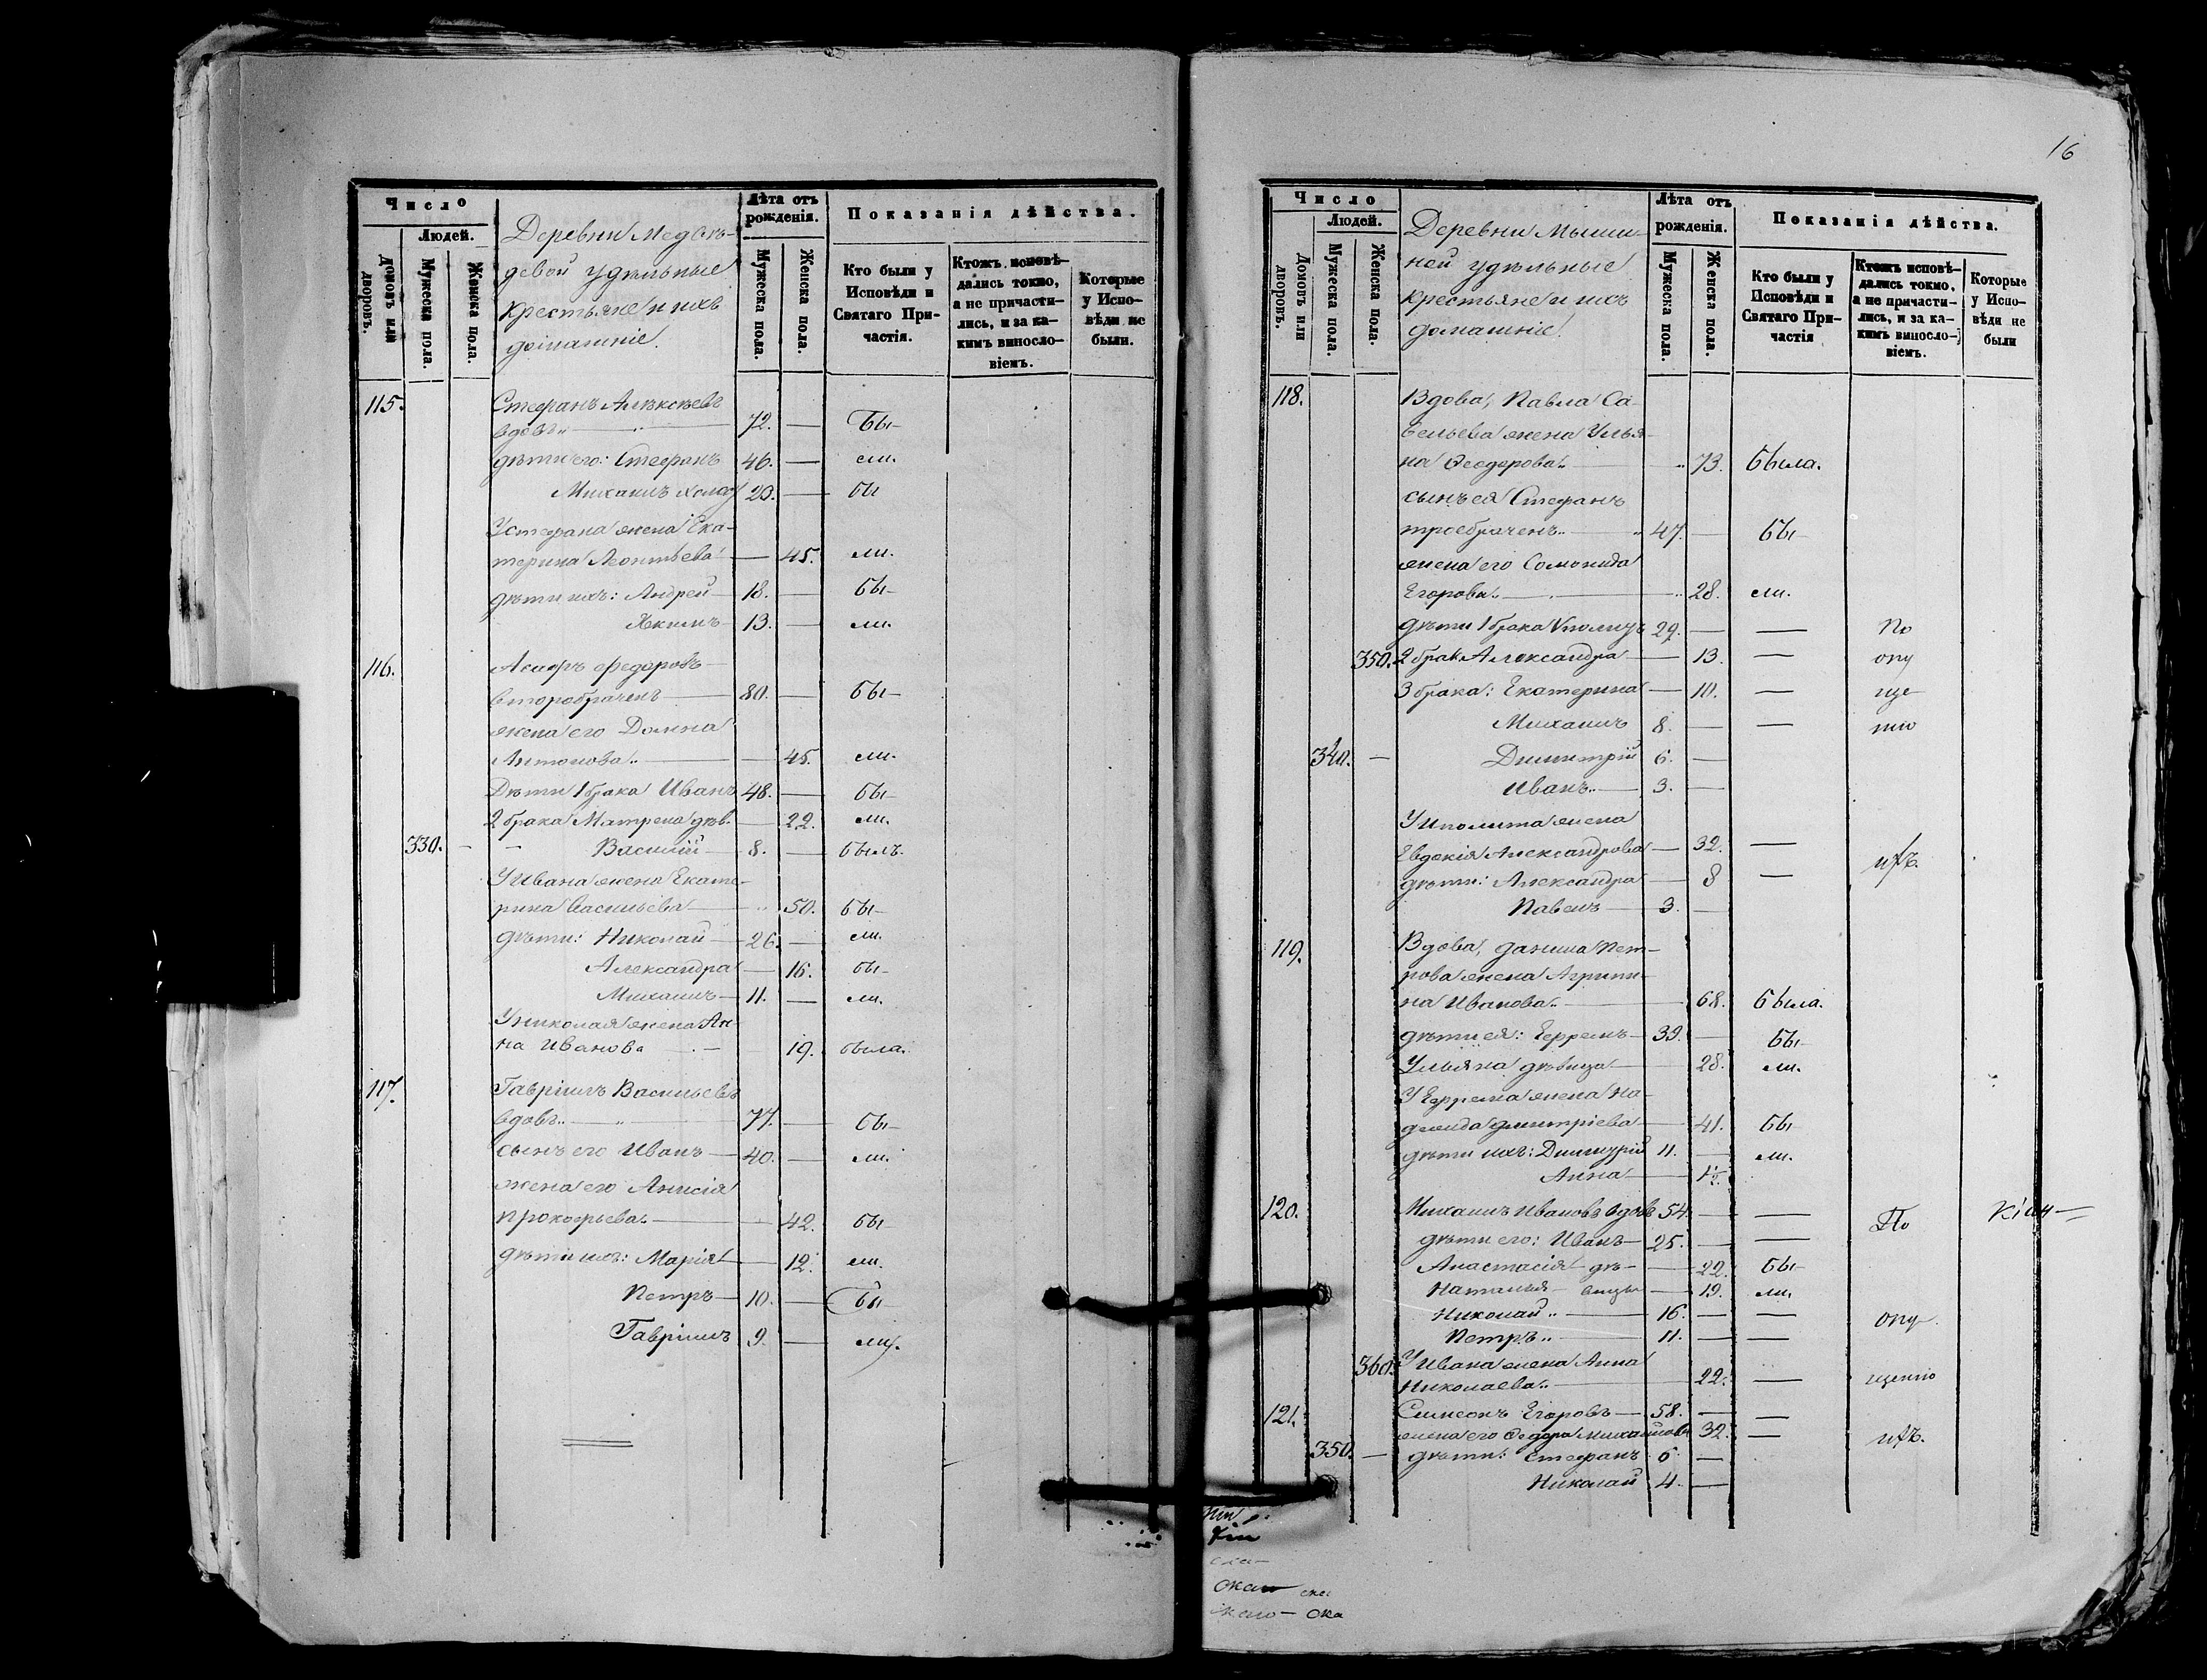 Число
Людей.
Домовъ или дворовъ.
Мужеска пола.
Женска пола.
Деревни Медвѣ-
девой удѣльные
крестьяне и ихъ
домашніе.
Лѣта отъ рожденія.
Мужеска пола.
Женска пола.
Показанія дѣйства.
Кто были у Исповѣди и Святаго При-частія.
Ктожъ исповѣ-дались токмо, а не причасти-лись, и за ка-кимъ винослo-віемъ.
Которые у Испо-вѣди не были.
115. Стефанъ Алексѣевъ
вдовъ 72. — Бы-
дѣти его: Стефанъ 46. — ли.
Михаилъ холос 20. — бы
У Стефана жена Ека-
терина Леонтьева — 45. ли.
дѣти ихъ: Андрей 18. — бы-
Якимъ 13. — ли.
116. Федоровъ
второбраченъ 80. — бы-
жена его Домна
Антонова — 45. ли.
Дѣти 1 брака Иванъ 48. — бы-
2 брака Матрена дѣв. — 22. ли.
330. - - Василій 8. — былъ.
У Ивана жена Екате-
рина Васильева 50. бы-
дѣти: Николай 26. — ли.
Александра — 16. бы-
Михаилъ 11. — ли.
У Николая жена Ан-
на Иванова 19. была.
117. Гавріилъ Васильевъ
вдовъ 77. — бы-
сынъ его Иванъ 40. — ли.
жена его Анисія
Прокофьева — 42. бы
дѣти ихъ: Марія — 12. ли.
Петръ 10. — бы
Гавріилъ 9. — ли.
16
Число
Людей.
Домовъ или дворовъ.
Мужеска пола.
Женска пола.
Деревни Мыши-
ной удѣльные
крестьяне и ихъ
домашніе.
Лѣта отъ рожденія.
Мужеска пола.
Женска пола.
Показанія дѣйства.
Кто были у Исповѣди и Святаго При-частія
Ктожъ исповѣ-дались токмо, а не причасти-лись, и за ка-кимъ винослo-віемъ.
Которые у Испо-вѣди не были
118. Вдова, Павла Са-
вельева жена Улья-
на Ѳеодорова 73. была.
сынъ ея Стефанъ
троебраченъ 47. — бы
жена его Соломонида
Егорова 28. ли.
дѣти 1 брака 29. — — По
350. 2 брак. Александра — 13. — опу
3 брака: Екатерина — 10. — ще
Михаилъ 8. — — нію
340. — Димитрій 6. —
Иванъ 3. —
У Иполита жена
Евдокія Александрова — 32. —
дѣти: Александра — 8 — ихъ.
Павелъ 3. —
119. Вдова, Данила Пет-
рова жена Агрипи-
на Иванова 68. была.
дѣти ея: Ефремъ 39. — бы-
Ульяна дѣвица 28. ли.
У Ефрема жена На-
Дмитріева 41. бы-
дѣти ихъ: Димитрій 11. — ли.
Анна — ½.
120. Михаилъ Ивановъ вдовъ 54. — — По
дѣти его: Иванъ 25. — —
Анастасія дѣ- 22. бы-
Наталья вицы 19. ли.
Николай 16. — — опу-
Петръ 11. — —
360. У Ивана жена Анна
Николаева 22. — щенію
121. Симеонъ Егоровъ 58. — —
жена его Ѳедора Михайлова 32. — ихъ.
350. — дѣти: Стефанъ 6 —
Николай 4. —
ока